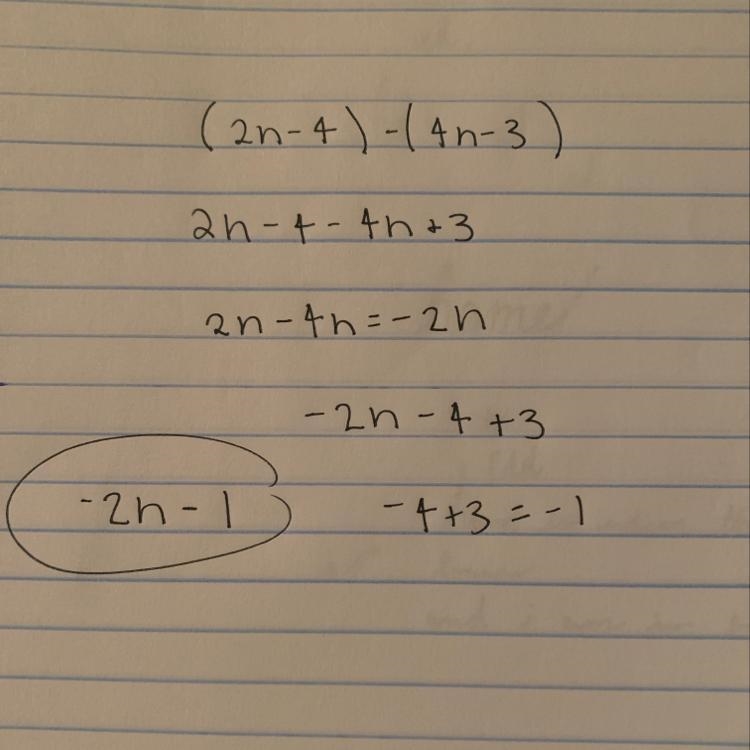 (2n-4)-(4n-3)
2n-4-4n+3
2n-4n=-2n
-2n-4+3
-2n-1
-4+3=-1